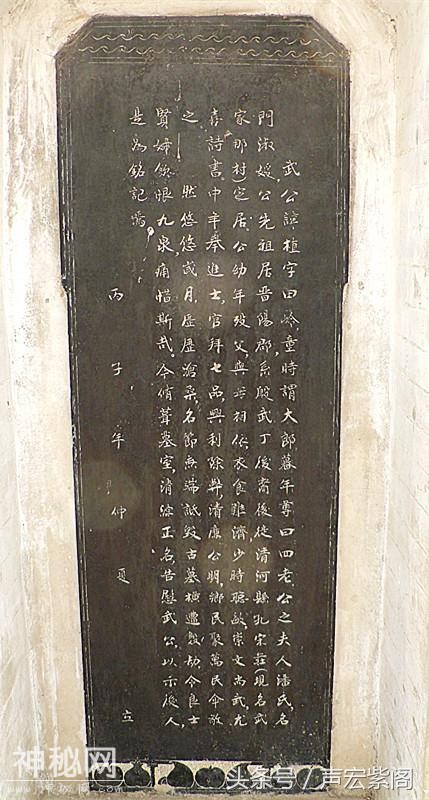 武公諱植字曰嶺童時謂大郎暮年尊曰四老公之夫人潘氏名
門淑媛公先祖居晋陽郡系殷武丁後裔後徙清河縣孔宋莊(現名武
家那村)定居公幼年殁父與母相依衣食難濟少時聰敏崇文尚武尤
喜詩書中年舉進士官拜七品興利除弊清廉公明鄉民聚萬民傘敬
之 然悠悠歲月歷歷滄桑名節無端詆毀古墓横遭盤劫令良士
賢婦飲恨九泉痛惜斯哉今脩葺墓室清源正名告慰武公以示後人
是為銘記焉
丙子年仲夏 立
神秘网
头条号/声宏紫阁